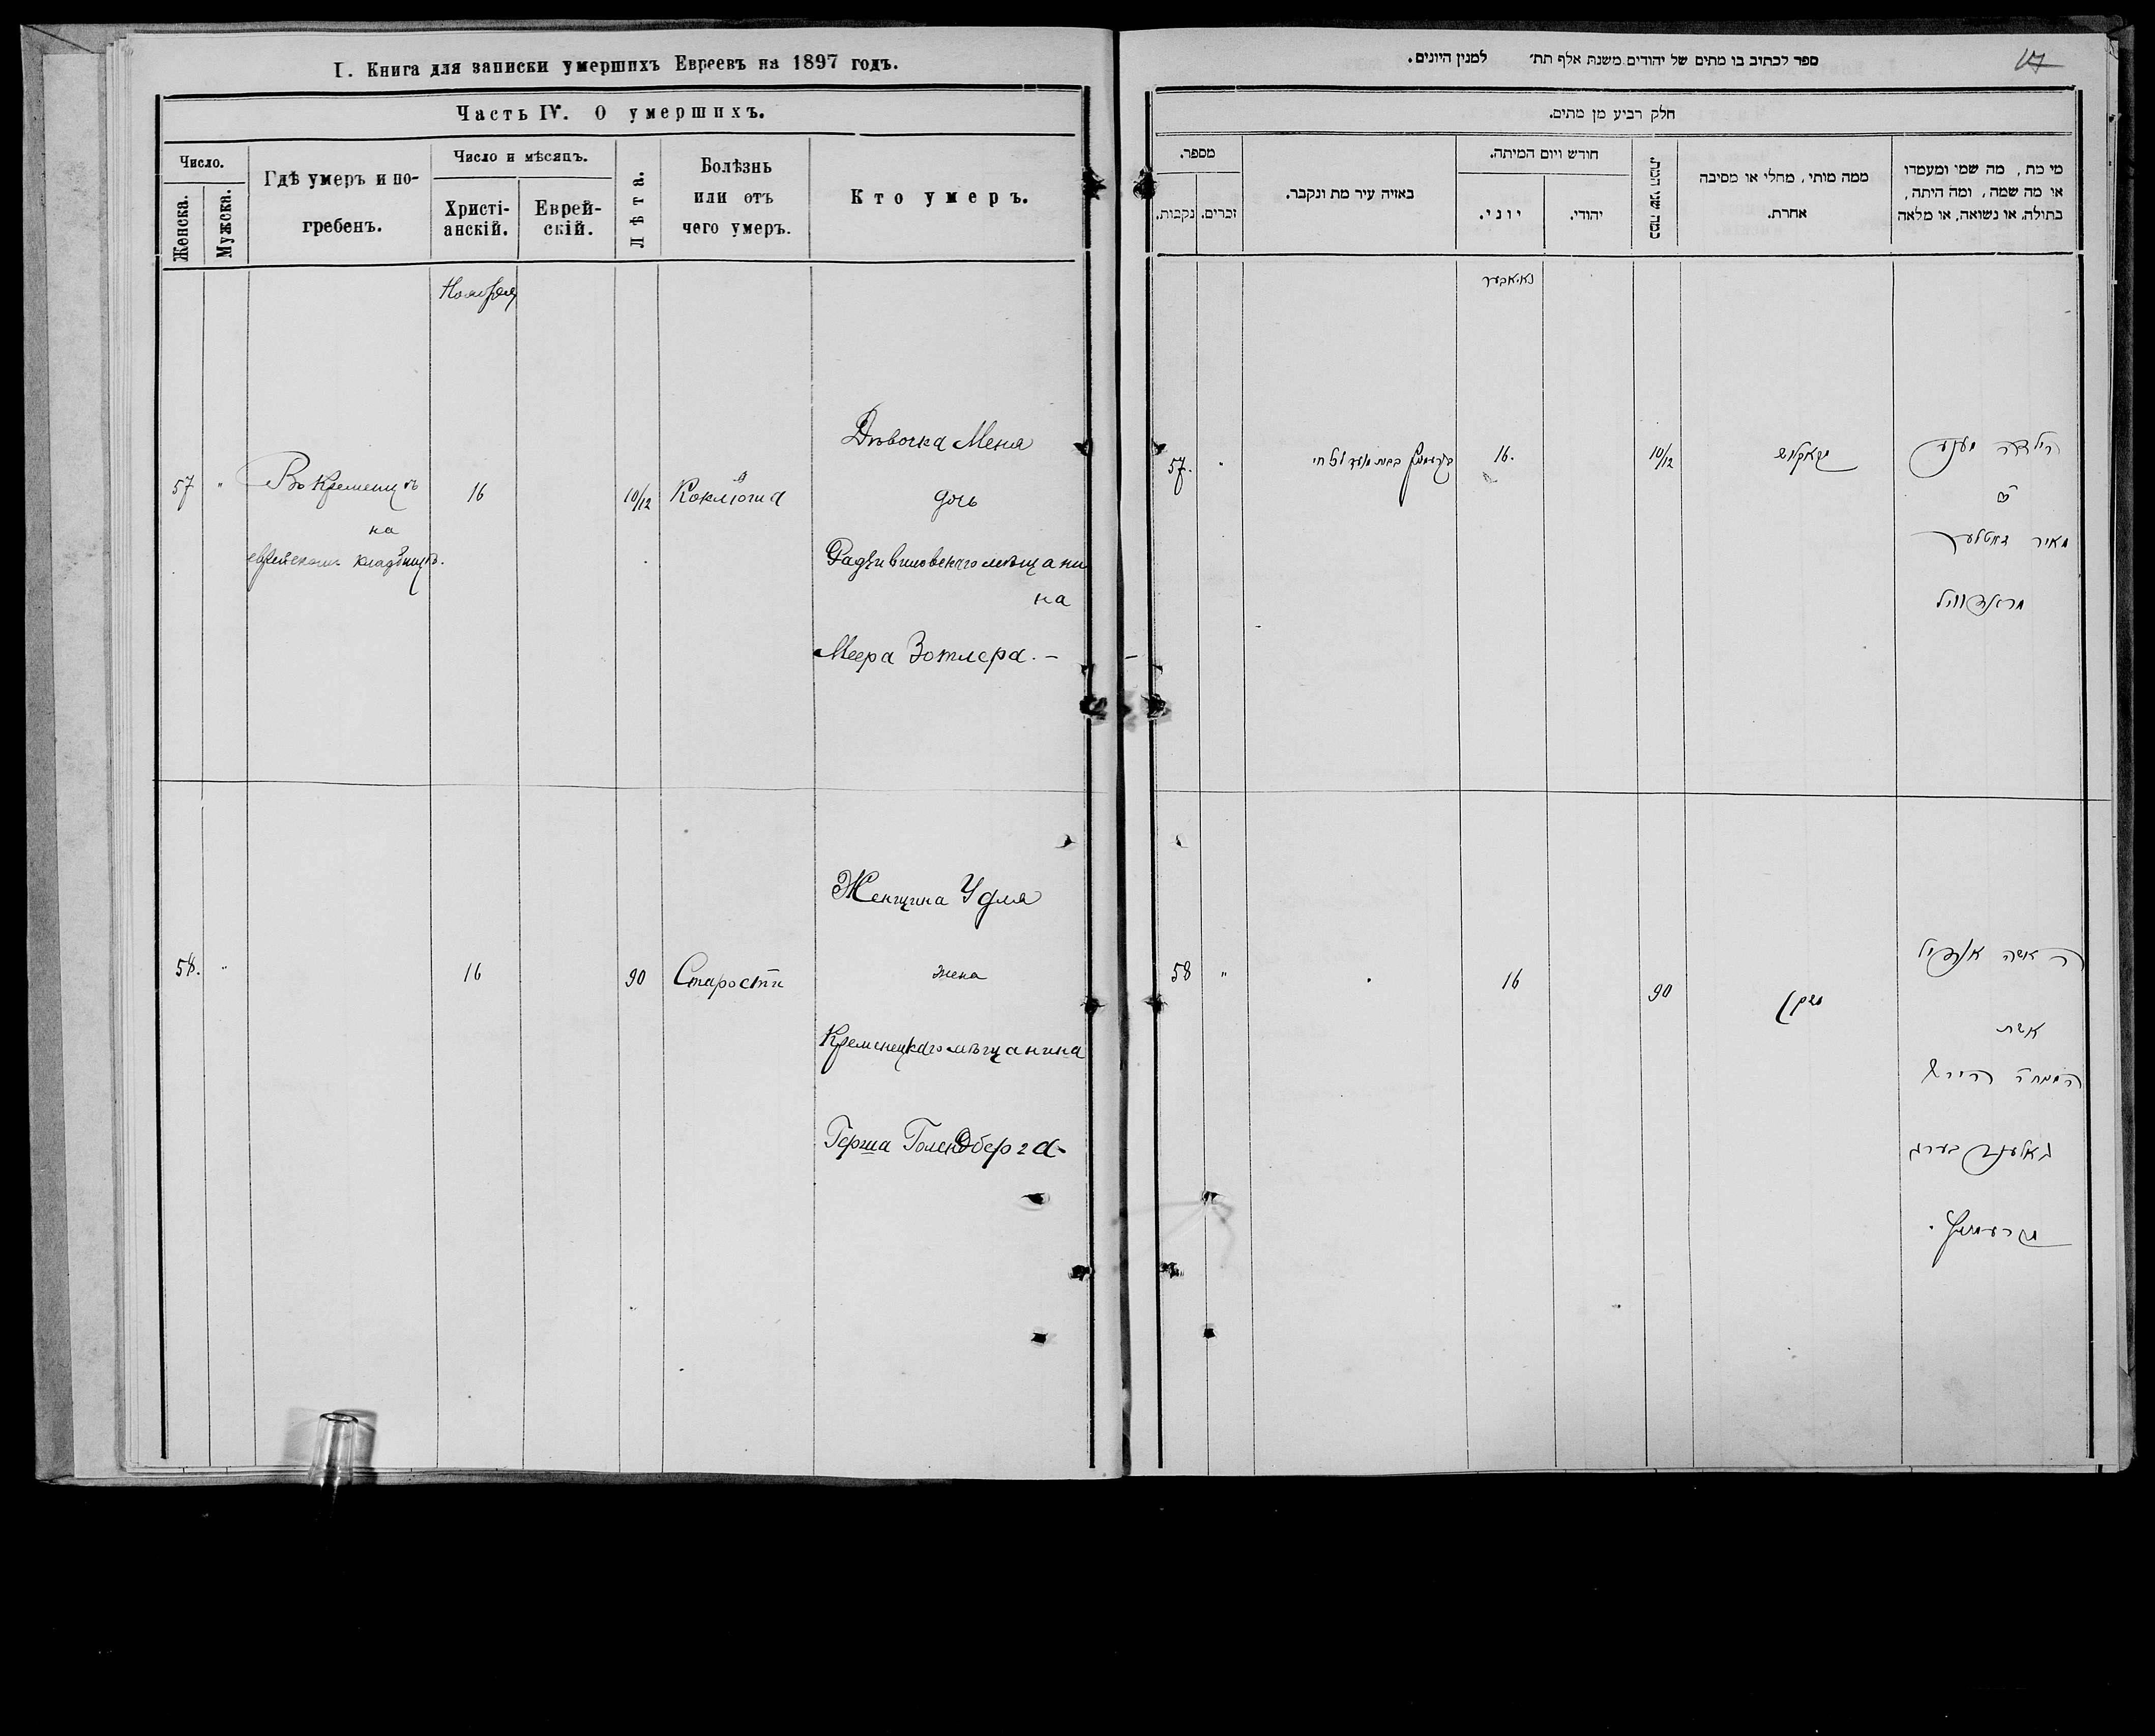 I. Книга для записки умершихъ Евреевъ на 1897 годъ.
Часть IV. О умершихъ.
Число.
Женска.
Мужска.
Гдѣ умеръ и по-
гребенъ.
Число и мѣсяцъ.
Христі-
анскій.
Еврей-
скій.
Лѣта.
Болѣзнь
или отъ
чего умеръ.
Кто умеръ.
Ноября
57 "
Въ Кременцѣ
на
еврейском кладбищѣ.
16
10/12
Коклюша
Дѣвочка Меня
дочь
Радзивиловскаго мѣщани
на
Меера Зотлера. –
58. "
16
90
Старости
Женщина Удля
жена
Кременецкаго мѣщанина
Герша Голендберга
ספר לכתוב בו מתים של יהודים משנת אלף תת׳ למנין היונים.
17
חלק רביע מן מתים.
מספר.
נקבות.
זכרים.
באיזה עיר מת ונקבר.
חודש ויום המיתה.
יוני.
יהודי.
כמה שני המת.
ממה מותי, מחלי או מסיבה
אחרת.
מי מת, מה שמו ומעמדו
או מה שמה, ומה היתה,
בתולה, או נשואה, או מלאה
נאיאבער
57. "
16.
10/12
הילדה מעניע
מאיר זאטלער
מראדזוויל
58 "
16
90
זקן
האשה אודיל
אשת
הירש
גאלענדבערג
מקרעמניץ.